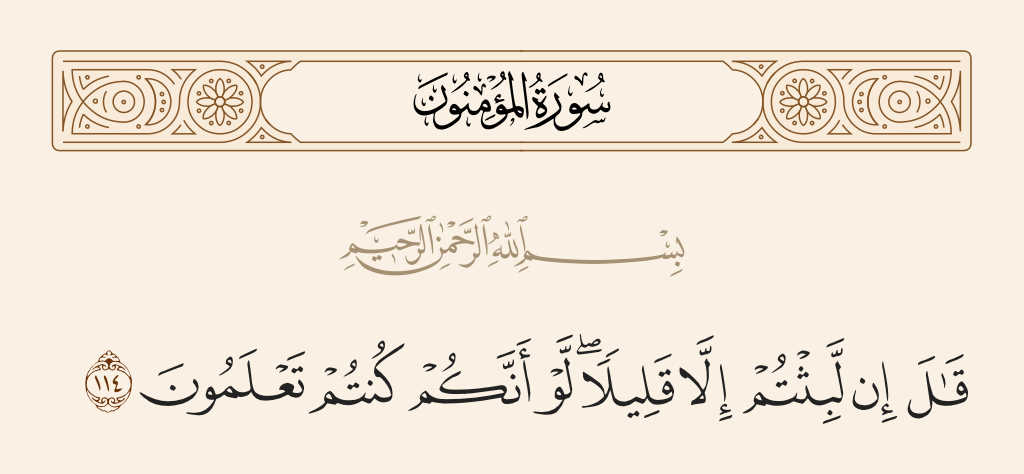 سُورَةُ الْمُؤْمِنُونَ
بِسْمِ ٱللَّهِ ٱلرَّحْمَٰنِ ٱلرَّحِيمِ
قَٰلَ إِن لَّبِثْتُمْ إِلَّا قَلِيلًا ۖ لَّوْ أَنَّكُمْ كُنتُمْ تَعْلَمُونَ ١١٤